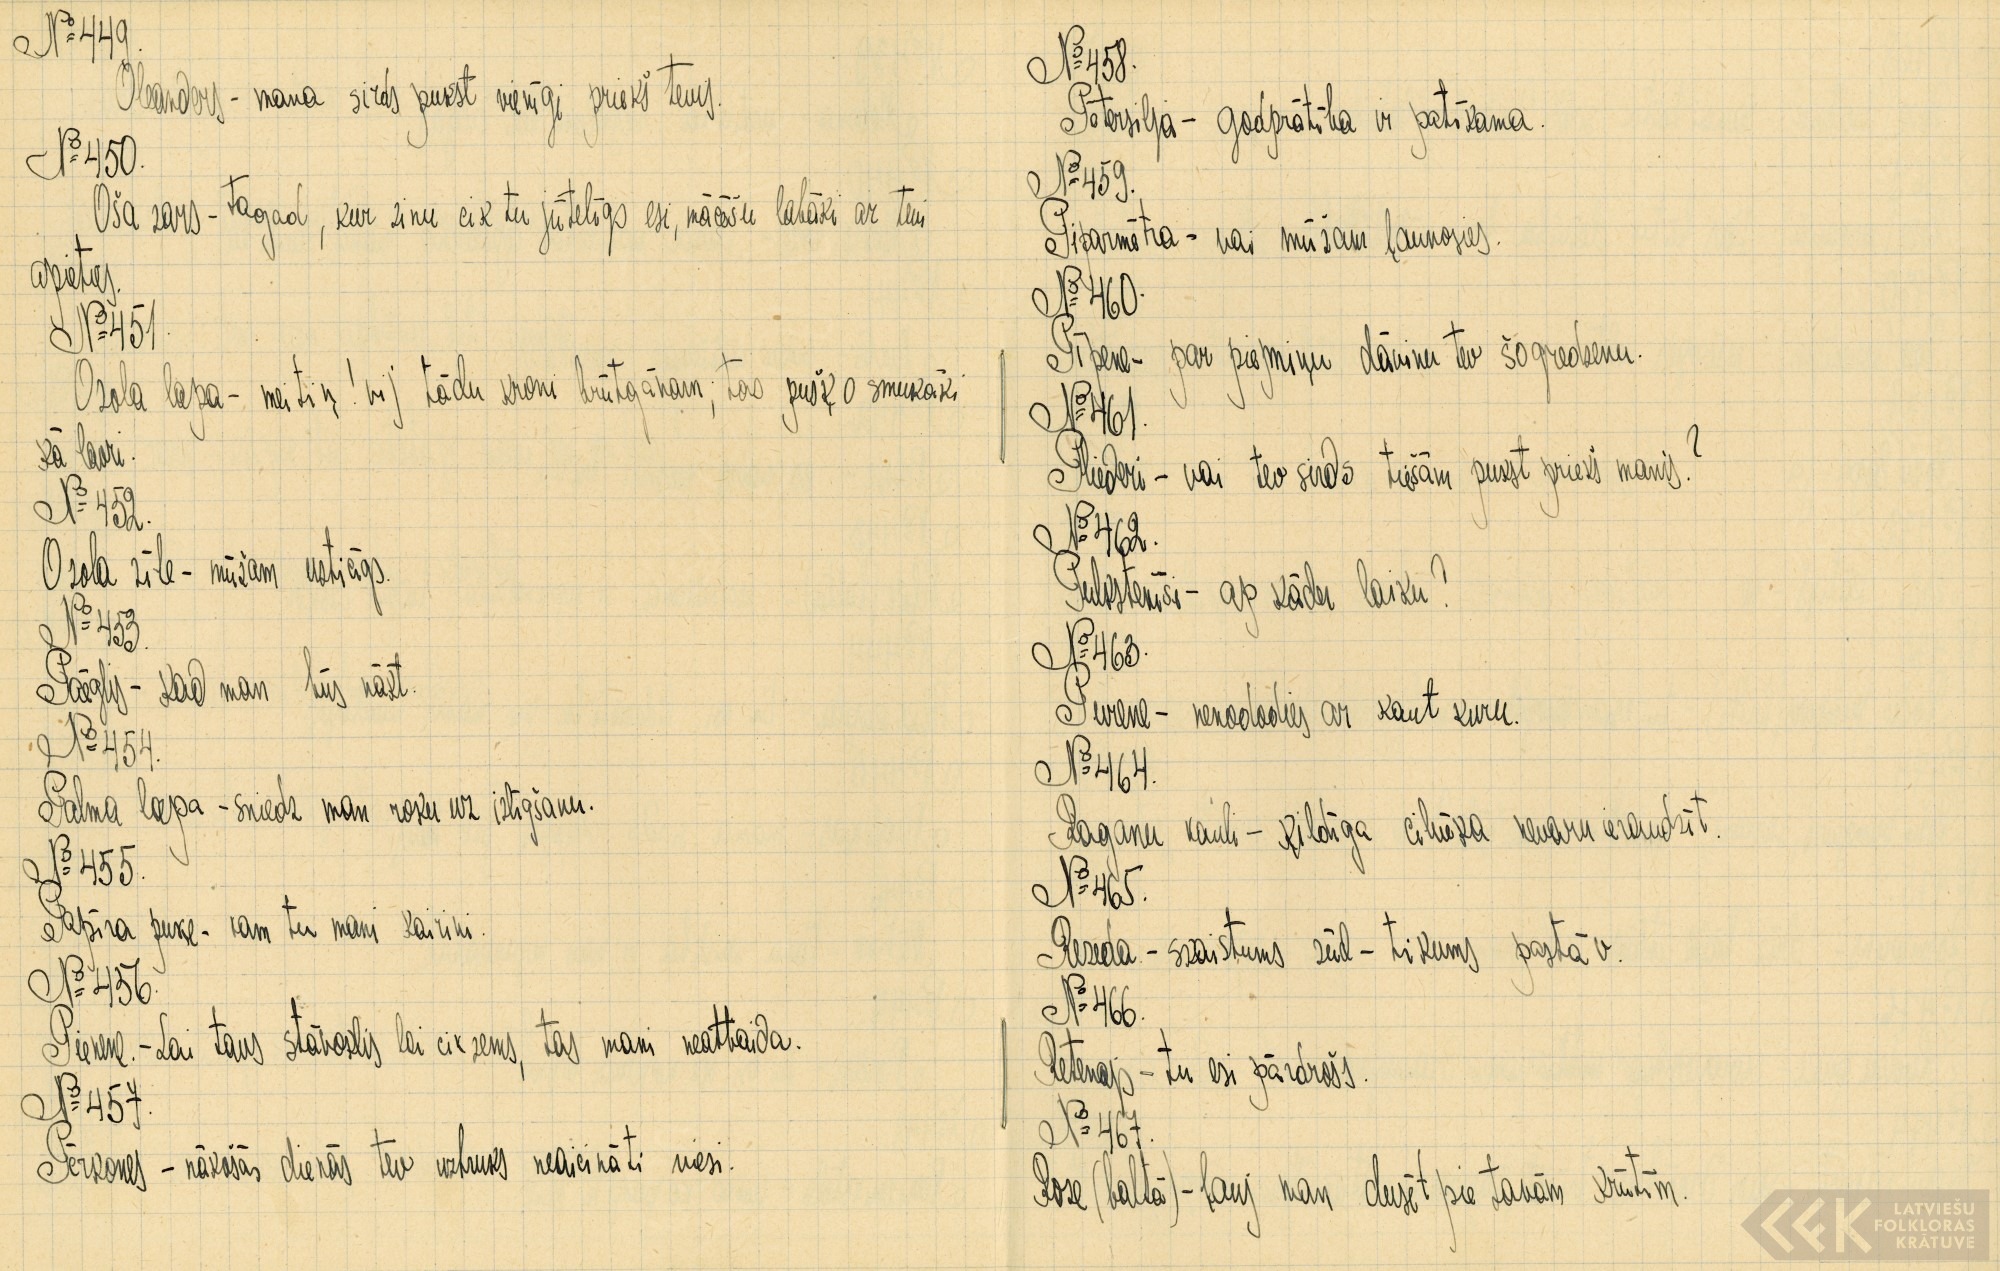 № 449.
Oleanders - mana sirds pukst vienīgi priekš tevis.
№ 450.
Oša zars - tagad, kur zinu cik tu jūtelīgs esi, mācēšu labāki ar tevi
apieties.
№ 451.
Ozola lapa - meitiņ! vij tādu kroni brūtgānam, tas pušķo smukāki
kā lauri.
№ 452.
Ozola zīle - mūžam usticīgs.
№ 453.
Pāeglis - kad man būs nākt.
№ 454.
Palma lapa - sniedz man roku uz izlīgšanu.
№ 455.
Papīra puķe - kam tu mani kairini.
№ 456.
Pienene. - Lai tavs stāvoklis lai cik zems, tas mani neatbaida.
№ 457.
Pērkones - nākošās dienās tev uzbruks neaicināti viesi.
№ 458.
Pētersilja - godprātība ir patīkama.
№ 459.
Piparmētra - vai mūžam ļaunosies.
№ 460.
Pīpene - par piemiņu dāvinu tev šo gredzenu.
№ 461.
Pliederi - vai tev sirds tiešām pukst priekš manis?
№ 462.
Pulkstenīši - ap kādu laiku?
№ 463.
Purene - nenododies ar kaut kuru.
№ 464.
Raganu kauli - ķildīga cilvēka nevaru ieraudzīt.
№ 465.
Rezeda - skaistums zūd - tikums pastāv.
№ 466.
Retenap - tu esi pārdrošs.
№ 467.
Rose (baltā) - ļauj man dusēt pie tavām krūtīm.
LATVIEŠU
FOLKLORAS
KRĀTUVE